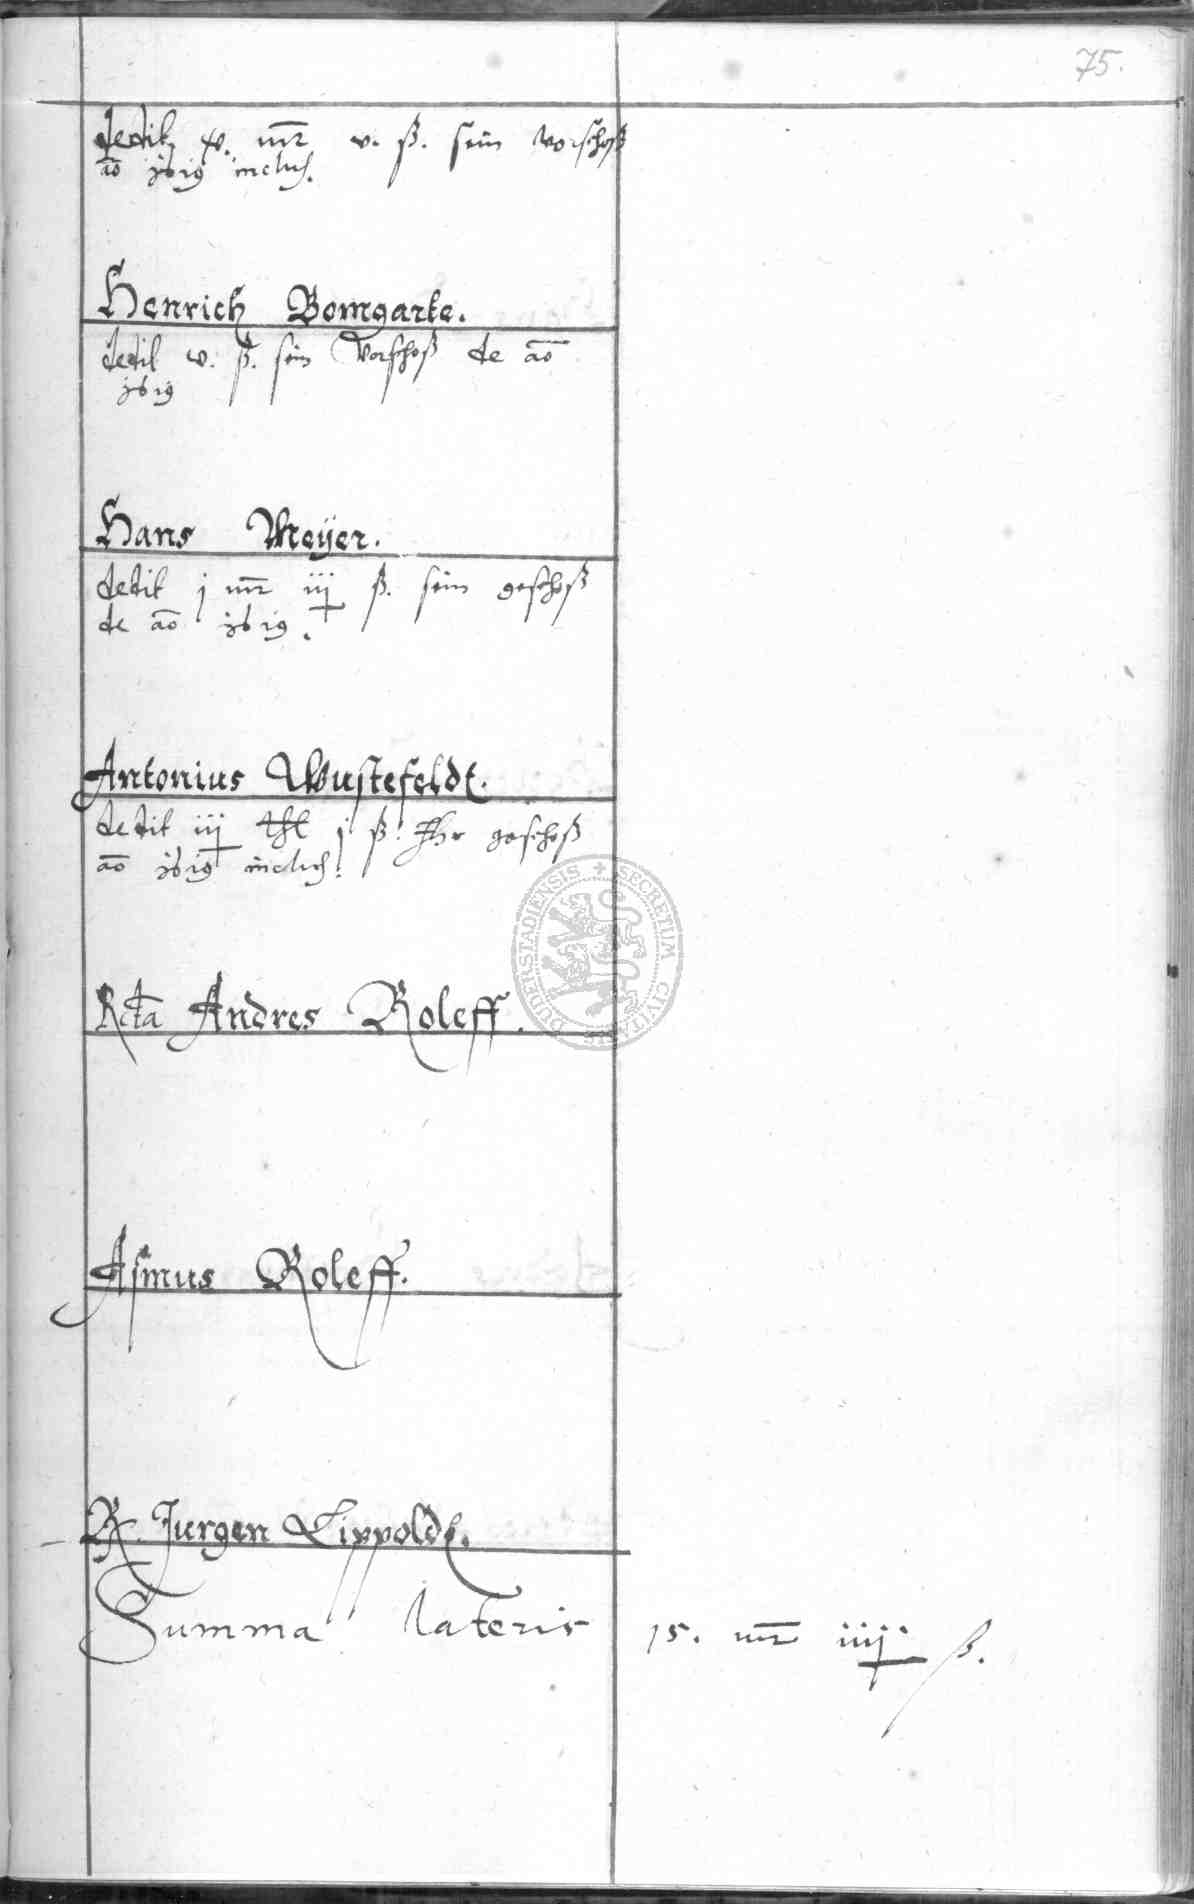 75.
dedit xv. mr v. ß. sein vorschoß
ao 1619 inclus.
Henrich Bomgarte.
dedit v. ß. sein Vorschoß de ao
1619
Hans Meÿer.
dedit j mr iij ß. sein geschoß
de ao 1619.
Antonius Wustefeldt.
dedit iij thl j ß. Ihr geschoß
ao 1619 inclus.
Andres Roleff.
Asmus Roleff.
R. Jurgen Lippoldt.
Summa lateris 15. mr iiij. ß.
SECRETUM CIVITATIS DUDERSTADIENSIS